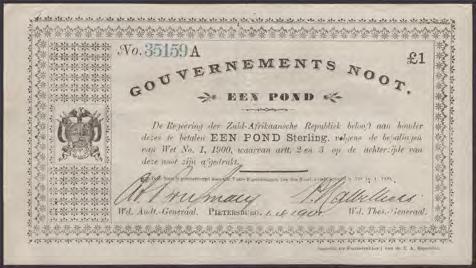 No. 35159 A
£1
GOUVERNEMENTS NOOT.
EEN POND
De Regeering der Zuid-Afrikaansche Republiek belooft aan houder
dezes te betalen EEN POND Sterling, volgens de bepalingen
van Wet No. 1, 1900, waarvan artt. 2 en 3 op de achterzijde van
deze noot zijn afgedrukt.
Wd. Audt.-Generaal. PIETERSBURG, 1901 Wd. Thes.-Generaal.